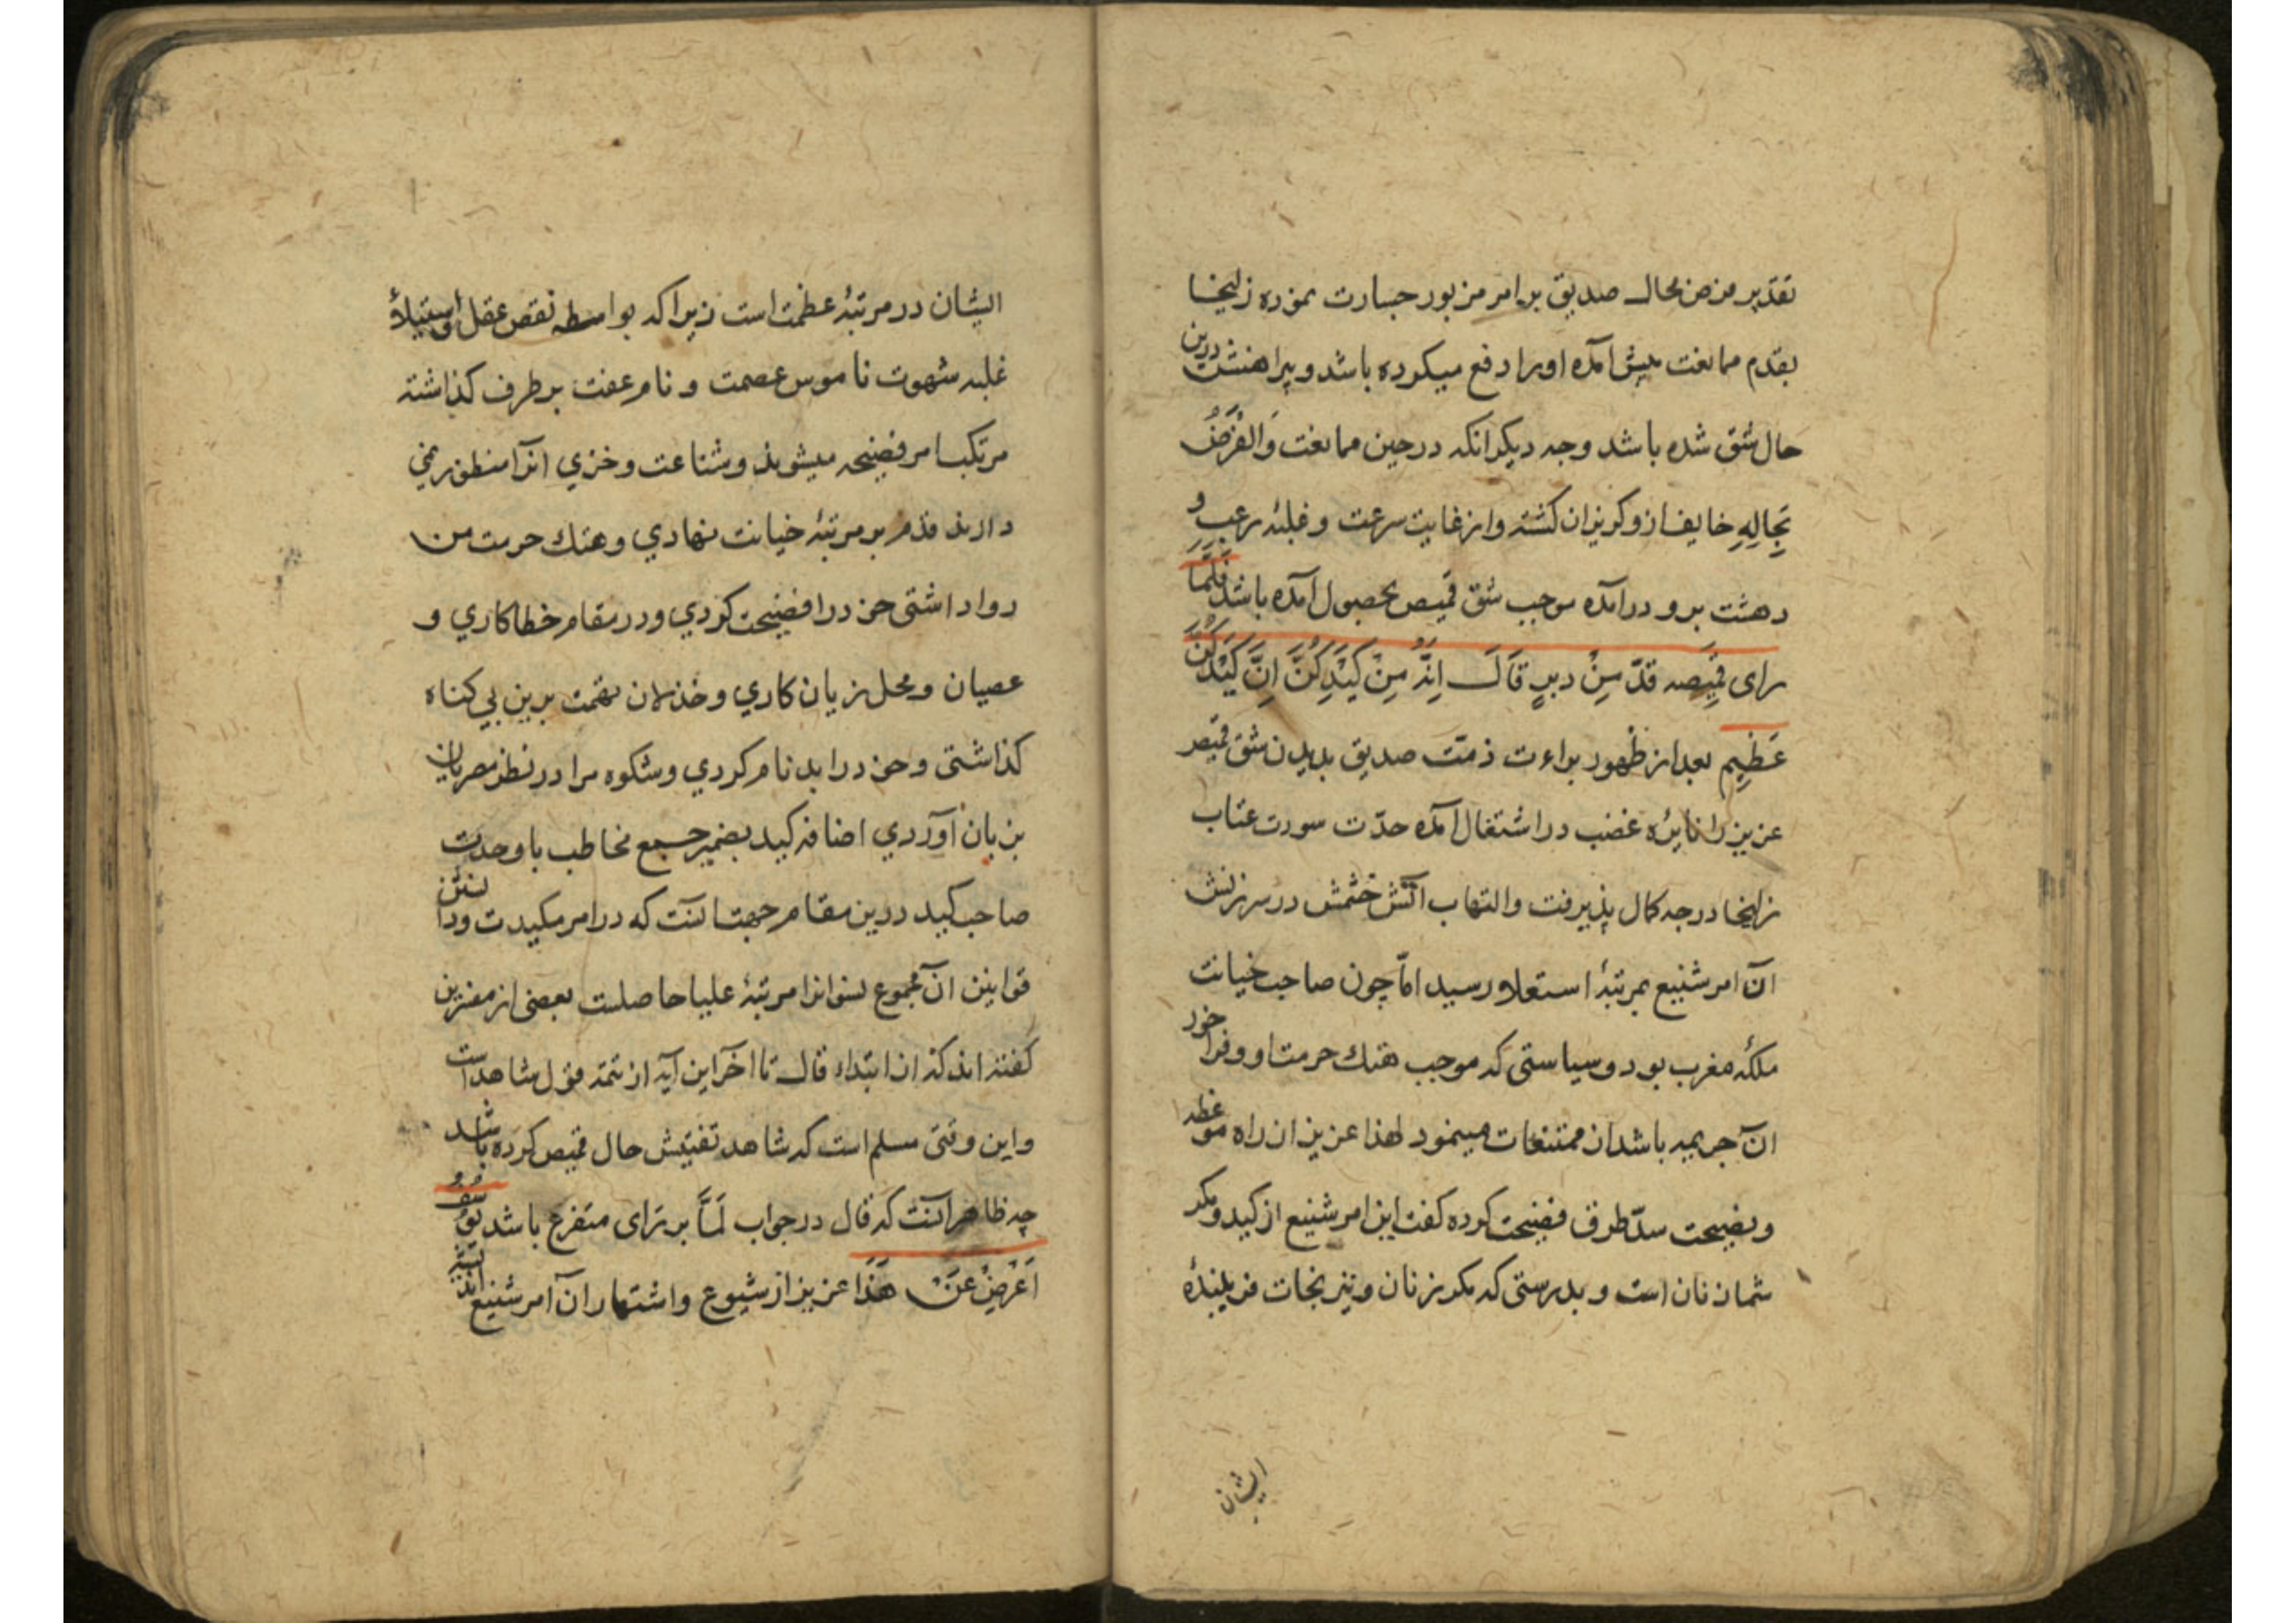 تقدیر فرض محال صدیق بر امر مزبور جسارت نموده زلیخا
بقدم ممانعت پیش آمده اورا دفع میکرده باشد و پیراهنش درین
حال شق شده باشد وجه دیکر انکه در حین ممانعت وَالفَرَضُ
بِحَالِهِ خایف ازو کریزان کشته و از غایت سرعت و غلبهٔ رعب و
دهشت برو در آمده موجب شق قمیص بحصول آمده باشد فَلَمَّا
رای قمیصه قدّ مِنْ دبرٍ قَالَ اِنَّهُ مِنْ كَيْدِكُنَّ اِنَّ كَيْدَكُنَّ
عَظِيم بعد از ظهور براءت ذمّت صدیق بدیدن شق قمیص
عزیز را نایرهٔ غضب در اشتغال آمده حدّت سورت عتاب
زلیخا درجه کمال پذیرفت والتهاب آتش خشمش در سرزنش
آن امر شنیع بمرتبهٔ استعلا رسید امّا چون صاحب خیانت
ملکهٔ مغرب بود و سیاستی که موجب هتك حرمت او و فراخور
آن جریمه باشد از ممتنعات مینمود لهذا عزیز از راه موعظه
و نصیحت سدّ طرق فضیحت کرده کفت این امر شنیع از کید و مکر
شما زنان است و بدرستی که مکر زنان و نیرنجات فریبندهٔ
ایشان
ایشان در مرتبهٔ عظمت است زیرا که بواسطه نقص عقل و استیلاءِ
غلبه شهوت ناموس عصمت و نام عفت بر طرف کذاشته
مرتکب امر فضیحه میشوند و شناعت و خزي آنرا منظور نمی
دارند قدم بر مرتبهٔ خیانت نهادي و هتك حرمت من
روا داشتی خود را فضیحت کردي و در مقام خطاکاري و
عصیان و محل زیان کاري و خذلان تهمت برین بي کناه
کذاشتی و خود را بد نام کردي و شکوه مرا در نظر مصریان
بزبان آوردي اضافه کید بضمیر جمع مخاطب با وحدت
صاحب کید درین مقام جهت آنست که در امر مکیدت و دانستن
قوانین آن مجموع نسوانرا مرتبهٔ علیا حاصلست بعضی از مفسرین
کفته اند که از ابتداء قال تا آخر این آیه از تتمه قول شاهد است
و این وقتی مسلم است که شاهد تفتیش حال قمیص کرده باشد
چه ظاهر آنست که قال در جواب لَمَّا بر رَای متفرع باشد یُوسُفُ
اَعْرِضْ عَنْ هَذَا عزیز از شیوع و اشتهار آن امر شنیع اندیشه